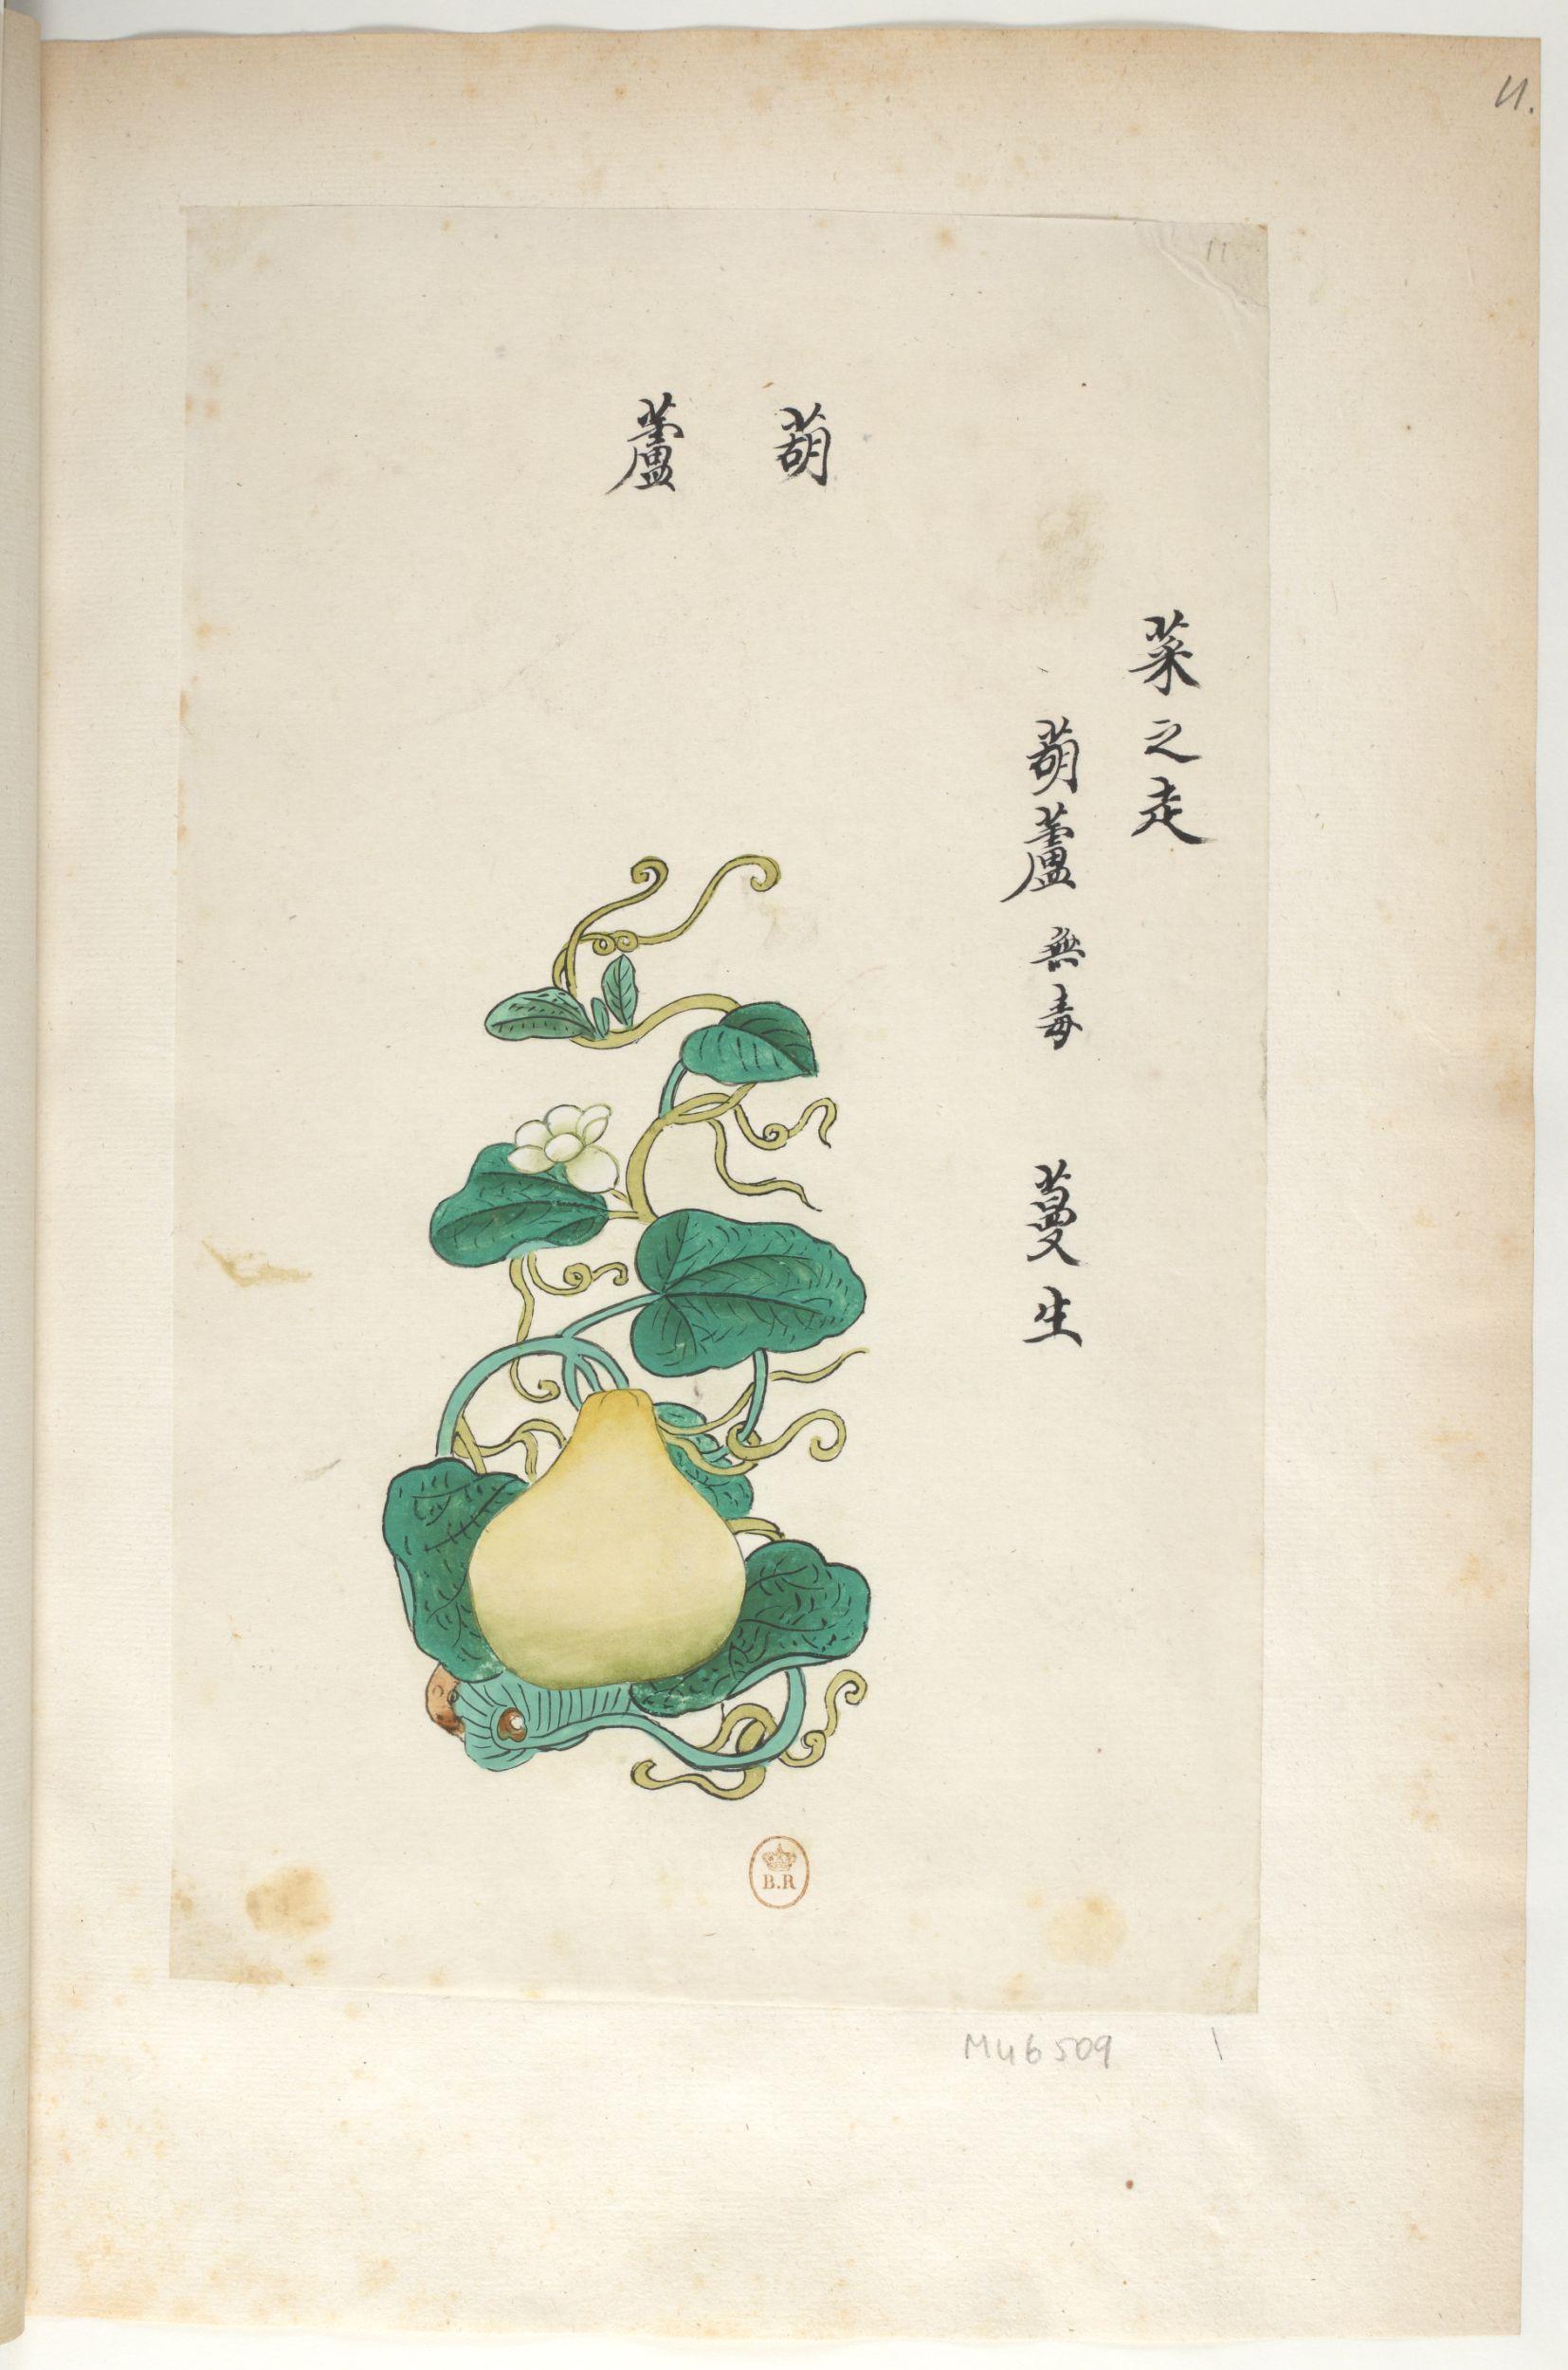 11.
11
葫蘆
菜之走
葫蘆 無毒 蔓生
B.R
M46509